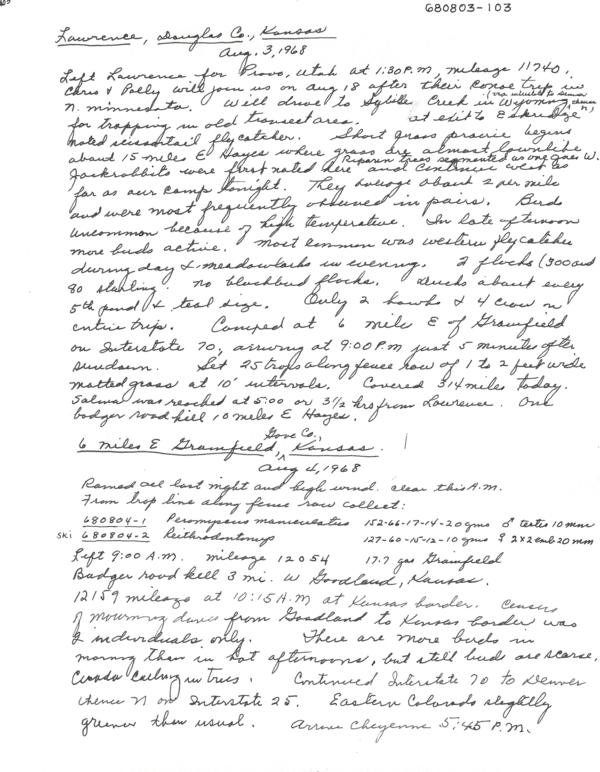 680803-103
Lawrence, Douglas Co., Kansas
Aug. 3, 1968
Left Lawrence for Provo, Utah at 1:30 P.M, mileage 11740.
Chris & Polly will join us on Aug 18 after their canoe trip in
N. Minnesota. Will drive to Sybille Creek in Wyoming
for trapping in old transect area. at exit to Eskridge
noted scissortail flycatcher. Short grass prairie begins
about 15 miles E Hays where grass are almost lawnlike
Riparin trees segmented as one goes W.
Jackrabbits were first noted here and continue west as
far as our camp tonight. They average about 2 per mile
and were most frequently observed in pairs. Birds
uncommon because of high temperature. In late afternoon
more birds active. Most common was western flycatcher
during day & meadowlarks in evening. 2 flocks (300 and
80 starling. no blackbird flocks. Ducks about every
5th pond & teal size. Only 2 hawks & 4 crow on
entire trip. Camped at 6 mile E of Grainfield
on Interstate 70, arriving at 9:00 P.M just 5 minutes after
sundown. Set 25 traps along fence row of 1 to 2 feet wide
matted grass at 10' intervals. Covered 314 miles today.
Salina was reached at 5:00 or 3 1/2 hrs from Lawrence. One
badger road kill 10 miles E Hayes.
6 miles E Grainfield, Gove Co., Kansas.
Aug 4, 1968
Rained all last night and high wind. clear this A.M.
From trap line along fence row collect:
680804-1 Peromyscus maniculatus 152-66-17-14-20 gms ♂ testis 10 mm
SKI 680804-2 Reithrodontomys 127-60-15-12-10 gms ♀ 2x2 emb 20 mm
Left 9:00 A.M. mileage 12054 17.7 gas Grainfield
Badger road kill 3 mi. W Goodland, Kansas.
12159 mileage at 10:15 A.M at Kansas border. Census
of mourning doves from Goodland to Kansas border was
2 individuals only. There are more birds in
morning than in hot afternoons, but still birds are scarse.
Cicada calling in trees. Continued Interstate 70 to Denver
thence N on Interstate 25. Eastern Colorado slightly
greener than usual. Arrive Cheyenne 5:45 P.M.